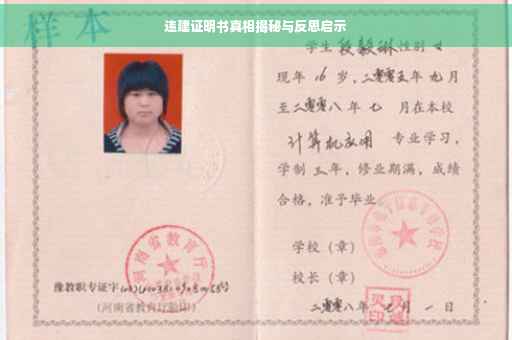 违建证明书真相揭秘与反思启示
样本
学生段毅琳性别女
现年16岁，二零零五年九月
至二零零八年七 月在本校
计算机应用 专业学习，
学制三年，修业期满，成绩
合格，准予毕业
学校（章）
校长（章）
二零零八年七月一日
河南省教育厅
豫教职专证字
（河南省教育厅验印）